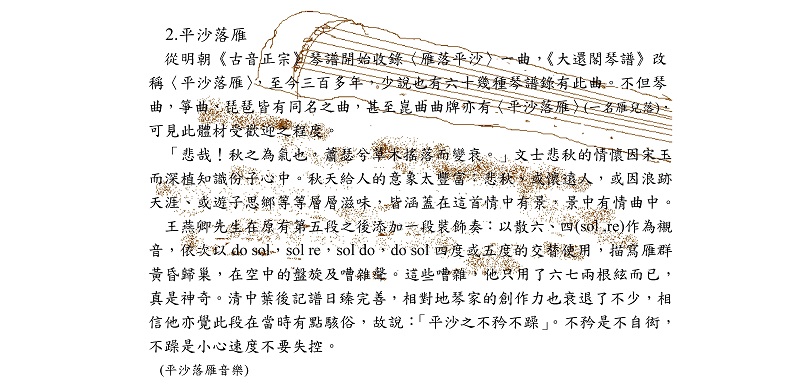 2.平沙落雁
從明朝《古音正宗》琴譜開始收錄〈雁落平沙〉一曲，《大還閣琴譜》改
稱〈平沙落雁〉，至今三百多年，少說也有六十幾種琴譜錄有此曲。不但琴
曲，箏曲、琵琶皆有同名之曲，甚至崑曲曲牌亦有〈平沙落雁〉(一名雁兒落)，
可見此體材受歡迎之程度。
「悲哉！秋之為氣也，蕭瑟兮草木搖落而變衰。」文士悲秋的情懷因宋玉
而深植知識份子心中。秋天給人的意象太豐富，悲秋、或懷遠人，或因浪跡
天涯、或遊子思鄉等等層層滋味，皆涵蓋在這首情中有景，景中有情曲中。
王燕卿先生在原有第五段之後添加一段裝飾奏：以散六、四(sol ,re)作為襯
音，依次以 do sol、sol re，sol do，do sol 四度或五度的交替使用，描寫雁群
黃昏歸巢，在空中的盤旋及嘈雜聲。這些嘈雜，他只用了六七兩根絃而已，
真是神奇。清中葉後記譜日臻完善，相對地琴家的創作力也衰退了不少，相
信他亦覺此段在當時有點駭俗，故說：「平沙之不矜不躁」。不矜是不自衒，
不躁是小心速度不要失控。
(平沙落雁音樂)